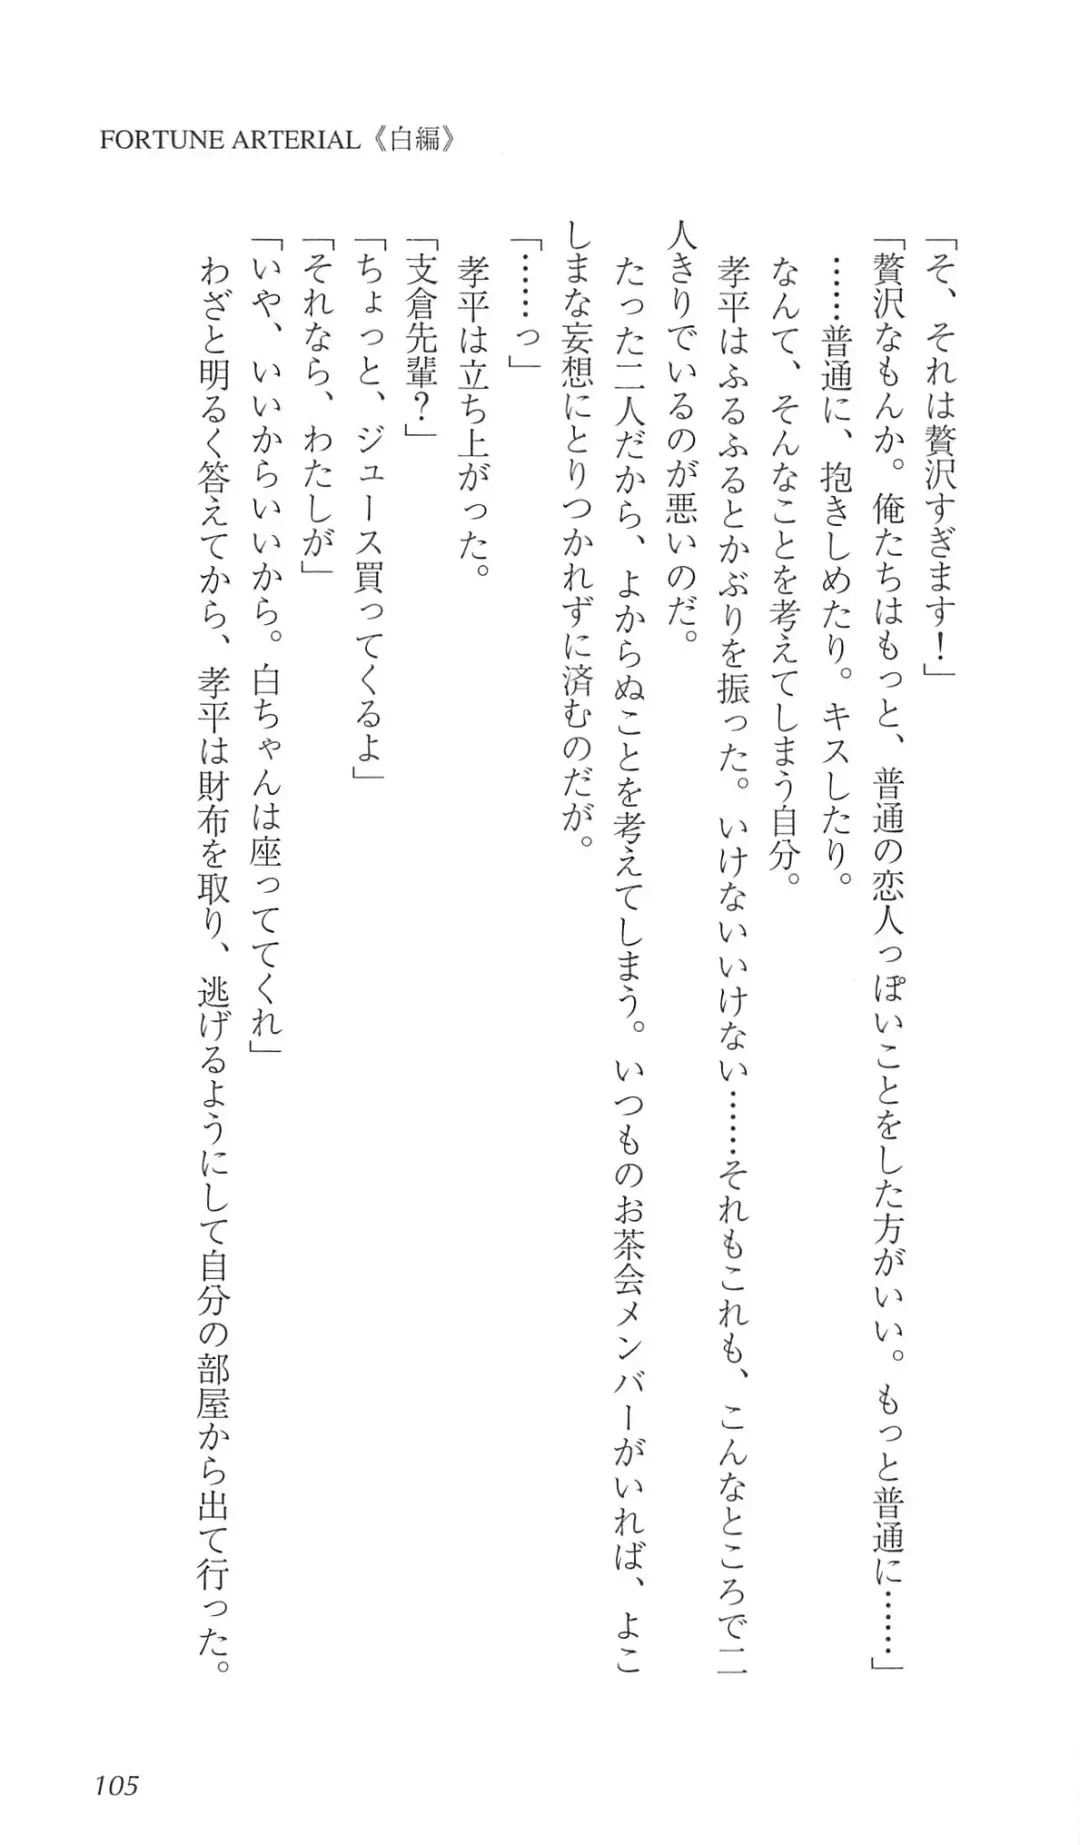 FORTUNE ARTERIAL《白編》
「そ、それは贅沢すぎます！」
「贅沢なもんか。俺たちはもっと、普通の恋人っぽいことをした方がいい。もっと普通に……」
……普通に、抱きしめたり。キスしたり。
なんて、そんなことを考えてしまう自分。
孝平はふるふるとかぶりを振った。いけないいけない……それもこれも、こんなところで二
人きりでいるのが悪いのだ。
たった二人だから、よからぬことを考えてしまう。いつものお茶会メンバーがいれば、よこ
しまな妄想にとりつかれずに済むのだが。
「……っ」
孝平は立ち上がった。
「支倉先輩？」
「ちょっと、ジュース買ってくるよ」
「それなら、わたしが」
「いや、いいからいいから。白ちゃんは座っててくれ」
わざと明るく答えてから、孝平は財布を取り、逃げるようにして自分の部屋から出て行った。
105